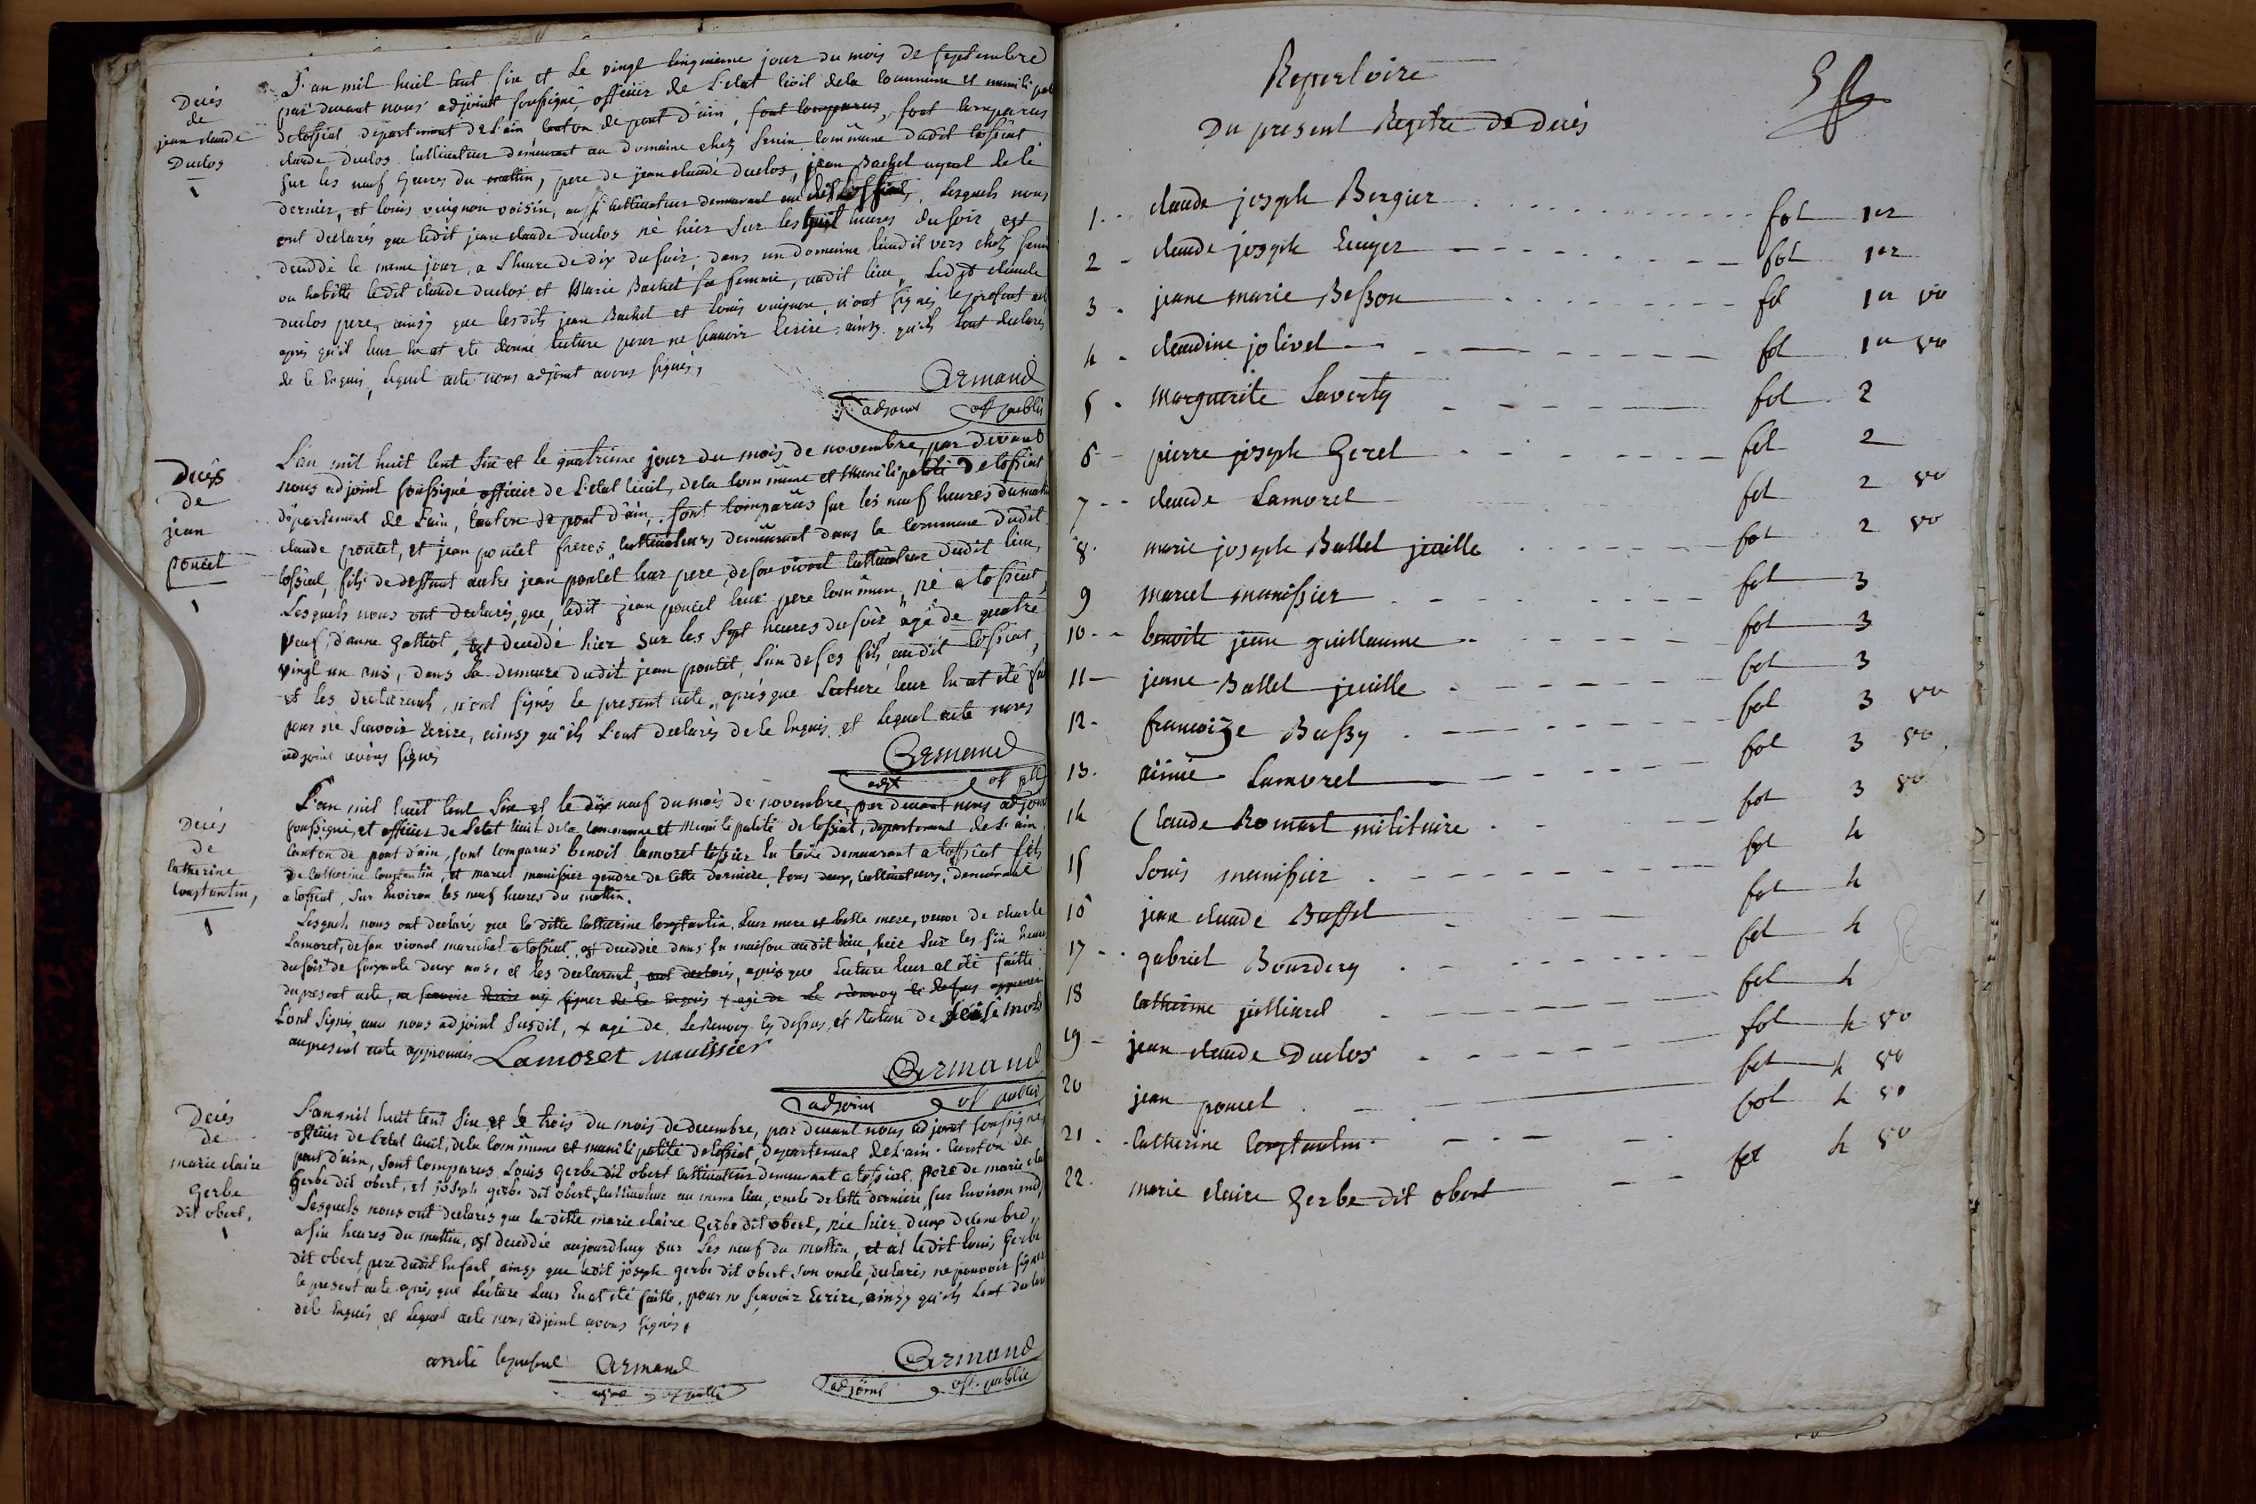 Décés
de
jean claude
Duclos
1
L'an mil huit cent six et Le vingt cinquieme jour du mois de septembre
par devant nous adjoint soussigné, officier de L'etat civil de la commune et municipal
de tossiat département de L'ain canton de pont d'ain, sont comparus, sont comparus
claude duclos cultivateur demeurant au domaine chez commune dudit tossiat
sur les neuf heures du mattin, pere de jean claude duclos, jean Bachet ayeul de le
dernier, et louis vuignon voisin, aussi cultivateur demeurant audit tossiat, Lesquels nous
ont declarés que ledit jean claude duclos né hier sur les huit heures du soir est
deceddé le meme jour, a L'heure de dix du soir, dans un domaine lieudit vers chez
ou habitte ledit claude duclos et Marie Bachet sa femme, audit lieu, Ledit claude
duclos pere, ainsy que lesdits jean Bachet et Louis vuignon, n'ont signés le present act
aprés qu'il leur en at eté donné lecture pour ne sçavoir Ecrire, ainsy qu'ils L'ont declarés
de le Enquis, Lequel acte nous adjoint avons signés,
Armand
adjoint of public
Décés
de
jean
poncet
1
L'an mil huit cent six et le quatrieme jour du mois de novembre, par devant
nous adjoint soussigné officier de L'etat civil, de la commune et municipalité de tossiat
département de L'ain, canton de pont d'ain, sont comparus sur les neuf heures du matin
claude poncet, et jean poncet freres, cultivateurs demeurant dans la commune dudit
tossiat, fils de deffunt autre jean poncet leur pere, de son vivant cultivateur dudit lieu,
Lesquels nous ont declarés, que, ledit jean poncet leur pere commun, né a tossiat,
veuf, d'anne Gattiot, est deceddé hier sur les sept heures du soir agé de quatre
vingt un ans, dans la demeure dudit jean poncet, L'un de ses fils, audit tossiat,
et les declarants, n'ont signés le present acte, aprés que Lecture leur en at eté fai
pour ne sçavoir Ecrire, ainsy qu'ils L'ont declarés de le Enquis, et lequel acte nous
adjoint avons signés
Armand
adjt of plic
Décés
de
Catherine
Constantin,
1
L'an mil huit cent six et le dix neuf du mois de novembre, par devant nous adjoint
soussigné, et officier de L'etat civil de la commune et municipalité de tossiat, departement de L'ain
canton de pont d'ain, sont comparus benoit Lamoret tissier En toile demeurant a tossiat fils
de Catherine Constantin, et marcel manissier gendre de cette derniere, tous deux, cultivateurs, demeurant
a tossiat, sur Environ les neuf heures du mattin.
Lesquels nous ont declarés que la ditte Catherine Constantin, leur mere et belle mere, veuve de charle
Lamoret, de son vivant marechal a tossiat, est deceddée dans sa maison audit lieu, hier sur les six heures
du soir de soixante deux ans, et les declarant, ont declarés, aprés que Lecture leur at eté faitte
du present acte, ne sçavoir Ecrire ny signer de le Enquis + agé de Le renvoy ci dessus approuvé
L'ont signés, avec nous adjoint susdit, + agé de, Le Renvoy cy dessus, et Rature de seise mots
au present acte approuvés Lamoret Manissier
Armand
adjoint of public
Décés
de
marie claire
Gerbe
dit obert,
1
L'an mil huit cent six et le trois du mois de decembre, par devant nous adjoint soussigné,
officier de L'etat civil, de la commune et municipalité de tossiat, departement de L'ain canton de
pont d'ain, sont comparus Louis Gerbe dit obert cultivateur demeurant a tossiat, pere de marie cla
Gerbe dit obert, et joseph gerbe dit obert, cultivateur au meme lieu, oncle de cette derniere, sur Environ midy
Lesquels nous ont declarés que la ditte marie claire Gerbe dit obert, née hier deux decembre,
a six heures du mattin, est deceddée aujourdhuy sur Les neuf du mattin, et at ledit louis Gerbe
dit obert, pere dudit Enfant, ainsy que ledit joseph gerbe dit obert son oncle, declarés ne pouvoir signer
le present acte aprés que Lecture Leur En at eté faitte, pour ne sçavoir Ecrire, ainsy qu'ils L'ont declaré
de le Enquis, et Lequel acte nous adjoint avons signés,
arreté le present Armand
adjoint of public
Armand
adjoint off. public
Repertoire
Du present Regitre de décés
5
1 - claude joseph Bergier fol 1er
2 - claude joseph Ecuyer fol 1er
3 - jeane marie Besson fol 1er vo
4 - claudine jolivet fol 1er vo
5 - Marguerite Laverty fol 2
6 - pierre joseph Gerel fol 2
7 - claude Lamoret fol 2 vo
8 - marie joseph Ballet jeuille fol 2 vo
9 marcel manissier fol 3
10 - benoite jeane guillaume fol 3
11 - jeane Ballet jeuille fol 3
12 - francoize Bussy fol 3 vo
13 - aimé Lamoret fol 3 vo
14 Claude Romart militaire fol 3 vo
15 Louis manissier fol 4
16 jean claude Buffet fol 4
17 - gabriel Bourdery fol 4
18 catherine jolliard fol 4
19 - jean claude Duclos fol 4 vo
20 jean poncet fol 4 vo
21 - Catherine Constantin fol 4 vo
22 - marie claire Gerbe dit obert fol 4 vo